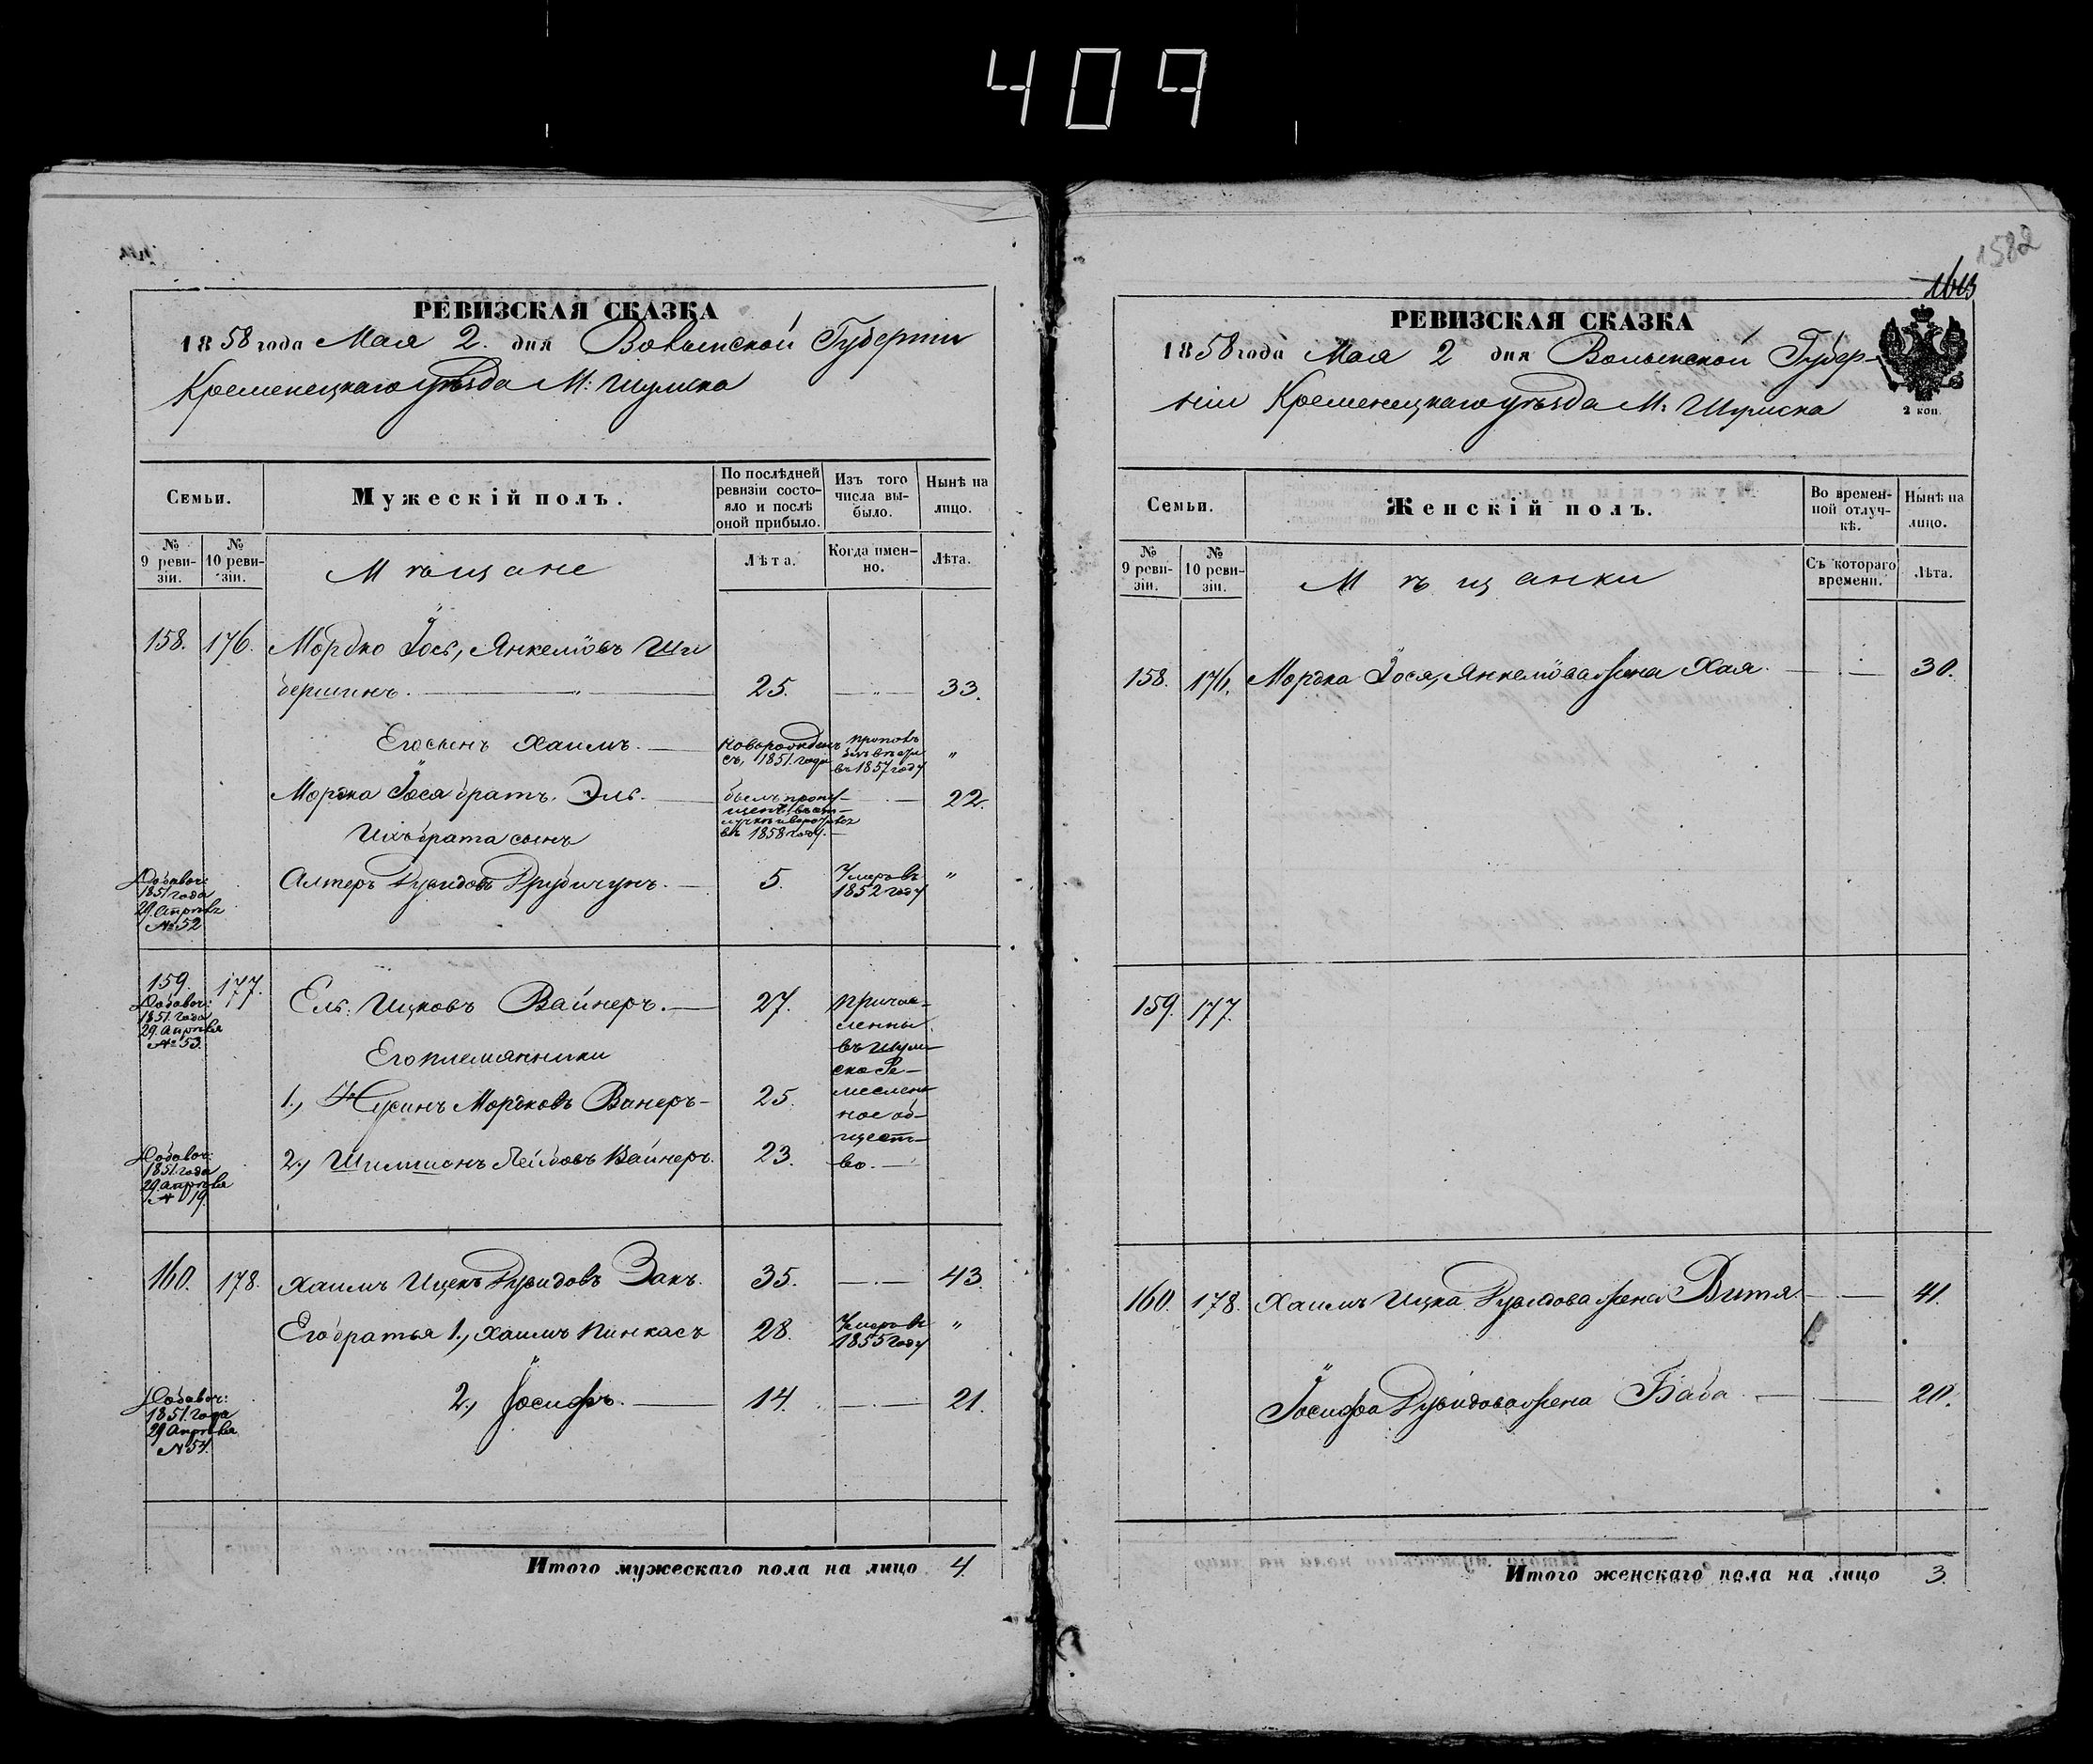 409
РЕВИЗСКАЯ СКАЗКА
1858 года Мая 2. дня Волынской Губернии
Кременецкаго уѣзда М: Шумска
Семьи.
Мужескій полъ.
По послѣдней ревизіи состояло и послѣ оной прибыло.
Изъ того числа выбыло.
Нынѣ на лицо.
№ 9 ревизіи.
№ 10 ревизіи.
Мѣщане
Лѣта.
Когда именно.
Лѣта.
158. 176. Мордко Іось, Янкелiовъ Ши
бершинъ. 25. 33.
Его сынъ Хаимъ. Новорожденъ съ, 1851. года пропалъ въ 1857 году "
Мордка Іося братъ. Эль. былъ пропущенъ въ 1858 году. 22.
Ихъ брата сынъ
Алтеръ Дувидовъ 5. Умеръ въ 1852 году "
Добавоч: 1851 года 29. Апрѣля № 52
159. 177. Ель. Ицковъ Вайнеръ. 27.
Добавоч: 1851. года 29. Апрѣля № 53.
Его племянники
1., Нусинъ Мордковъ Ванеръ 25.
2., Шимшонъ Лейбовъ Вайнеръ. 23.
причисленны въ Шумско Ремесленное общество.
Добавоч: 1851. года 29. Апрѣля № 19.
160. 178. Хаимъ Ицекъ Дувидовъ Закъ. 35. 43.
Его братья 1., Хаимъ Пинкасъ 28. Умеръ въ 1855 году "
2., Іосифъ. 14. 21.
Добавоч: 1851. года 29 Апрѣля № 54.
Итого мужескаго пола на лицо 4
1582
1613
РЕВИЗСКАЯ СКАЗКА
1858 года Мая 2 дня Волынской Губер-
ніи Кременецкаго уѣзда М: Шумска
2 коп.
Семьи.
Женскій полъ.
Во временной отлучкѣ.
Нынѣ на лицо.
№ 9 ревизіи.
№ 10 ревизіи.
Мѣщанки
Съ котораго времени.
Лѣта.
158. 176. Мордка Іося, Янкелiова жена Хая 30.
159. 177.
160. 178. Хаимъ Ицка Дувидова жена Витя 41.
Іосифа Дувидова жена Баба 20.
Итого женскаго пола на лицо 3.